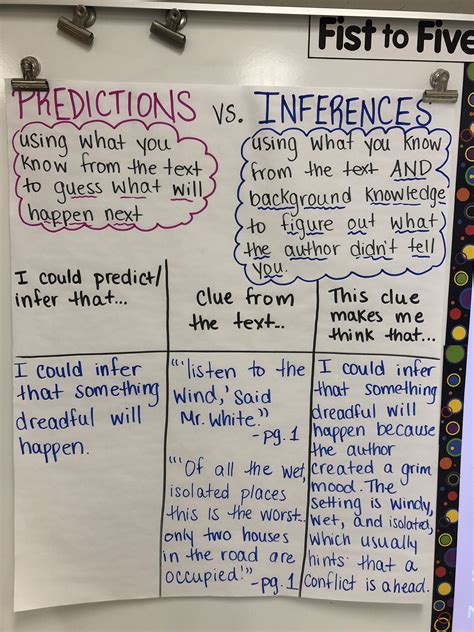 Fist to Five
PREDICTIONS vs. INFERENCES
using what you
know from the text
to guess what will
happen next
using what you know
from the text AND
background knowledge
to figure out what
the author didn't tell
you.
I could predict/
infer that...
Clue from
the text...
This clue
makes me
think that...
I could infer
that something
dreadful will
happen.
"'listen to the
Wind,' said
Mr. White."
-pg. 1
"'Of all the wet,
isolated places
this is the worst...
only two houses
in the road are
occupied!'" -pg. 1
I could infer
that something
dreadful will
happen because
the author
created a grim
mood. The
setting is windy,
wet, and isolated,
which usually
hints that a
conflict is ahead.